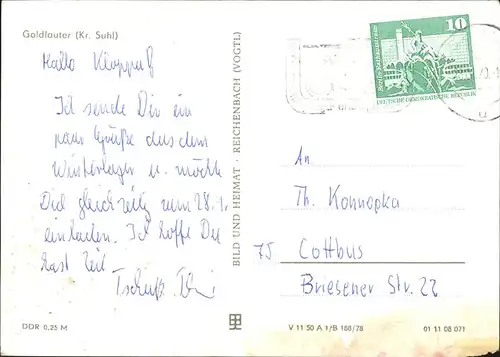 Goldlauter (Kr. Suhl)
Hallo
Ich sende Dir ein
paar Grüße aus dem
Winterlager u. möchte
Dich gleichzeitig zum 28.1.
einladen. Ich hoffe Du
hast Zeit
Tschüß
DDR 0,25 M
BILD UND HEIMAT · REICHENBACH (VOGTL)
10
DEUTSCHE DEMOKRATISCHE REPUBLIK
An
Th. Konnopka
75 Cottbus
Briesener Str. 22
V 11 50 A 1/B 188/78
01 11 08 071